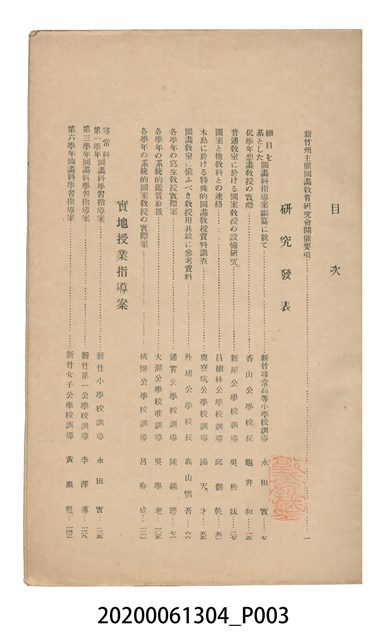 目次
新竹州主催圖畫教育研究會開催要項 一
研究發表
細目を基とした圖畫科指導案編纂に就て 新竹尋常高等小學校訓導 永田實
低學年想畫教授の實際 香山公學校長 龜井和
普通教室に於ける圖案教授の設備研究 新屋公學校訓導 吳松妹
圖案と他教科との連絡 員樹林公學校訓導 邱創乾
本島に於ける特殊的圖畫教授資料調査 鹿寮坑公學校訓導 湯天才
圖畫教室に備ふべき教授用具並に參考資料 外埔公學校長 高山愼吾
各學年の寫生教授實際案 通霄公學校訓導
各學年の系統的鑑賞取扱 大湖公學校准訓導 吳學老
各學年の系統的圖案教授の實際案 桃園公學校訓導 呂春成
實地授業指導案
尋常科第一學年圖畫科學習指導案 新竹小學校訓導 永田實
第三學年圖畫科學習指導案 新竹第一公學校訓導 李澤藩
第六學年圖畫科學習指導案 新竹女子公學校訓導
20200061304_P003